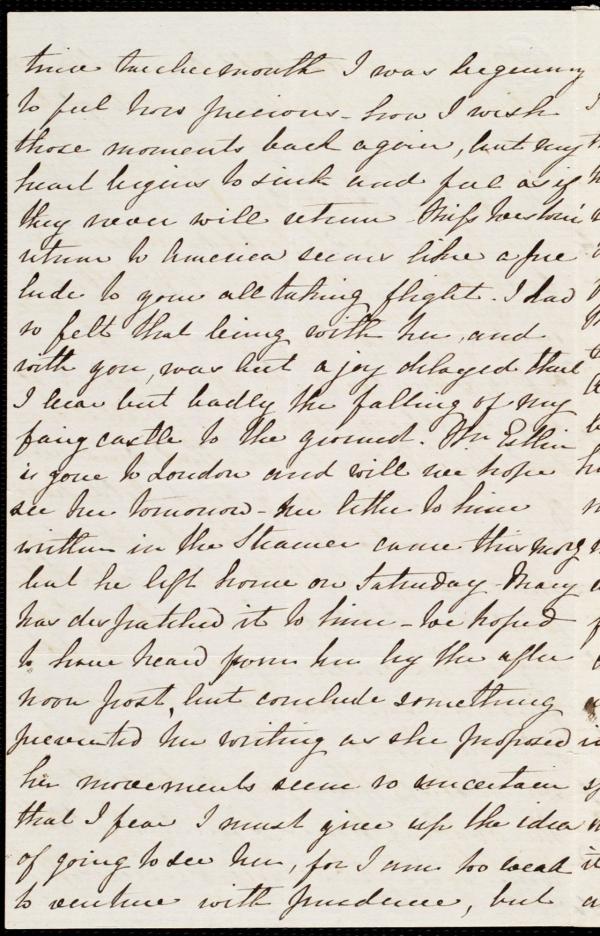 time twelvemonth I was beginning
to feel how precious - how I wish
those moments back again, but my
heart begins to sink and feel as if
they never will return - Miss Weston's
return to America seems like a pre
lude to your all taking flight. I had
so felt that being with her, and
with you, was but a joy delayed that
I bear but badly the falling of my
fairy castle to the ground. Mr Estlin
is gone to London and will we hope
see her tomorrow - her letter to him
written in the Steamer came this morg
but he left home on Saturday - Mary
has despatched it to him - we hoped
to have heard from her by the after
noon post, but conclude something
prevented her writing as she proposed
her movements seem so uncertain
that I fear I must give up the idea
of going to see her, for I am too weak
to venture with prudence, but